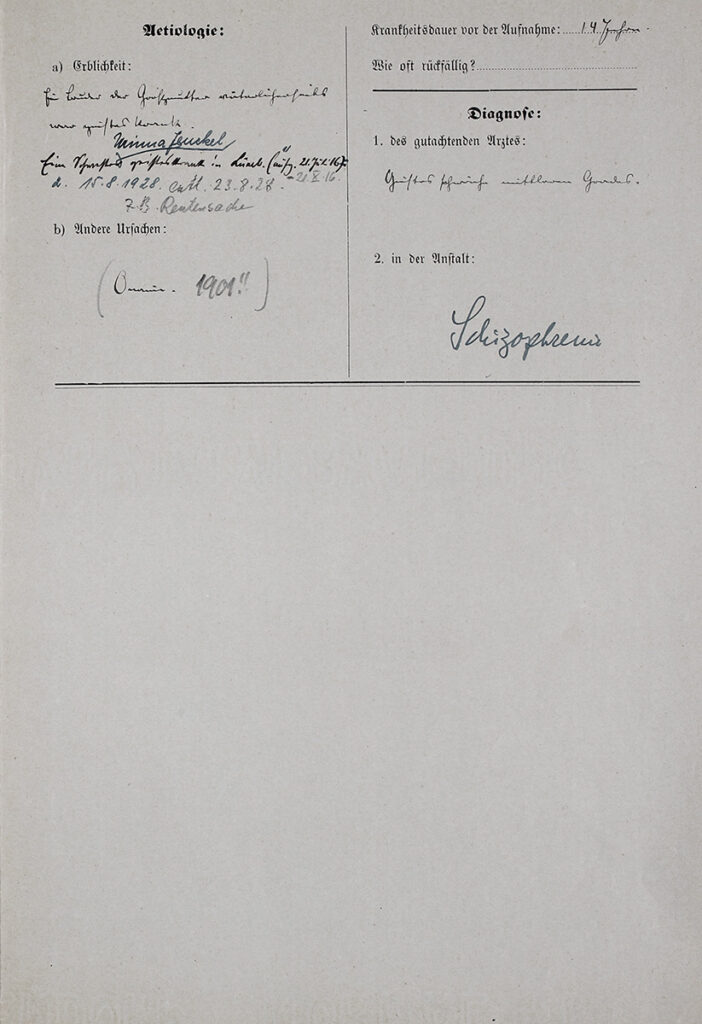 Aetiologie:
a) Erblichkeit:
Ein Bruder der Großmutter väterlicherseits
war geisteskrank.
Minna Jenckel
Eine Schwester geisteskrank in Lüneb. 21. Juli 16
21 X 16.
d. 15.8.1928. entl. 23.8.28.
z.B. Rentensache
b) Andere Ursachen:
(Onanie. 1901!!)
Krankheitsdauer vor der Aufnahme: 14 Jahre.
Wie oft rückfällig?
Diagnose:
1. des gutachtenden Arztes:
Geistesschwäche mittleren Grades.
2. in der Anstalt:
Schizophrenie